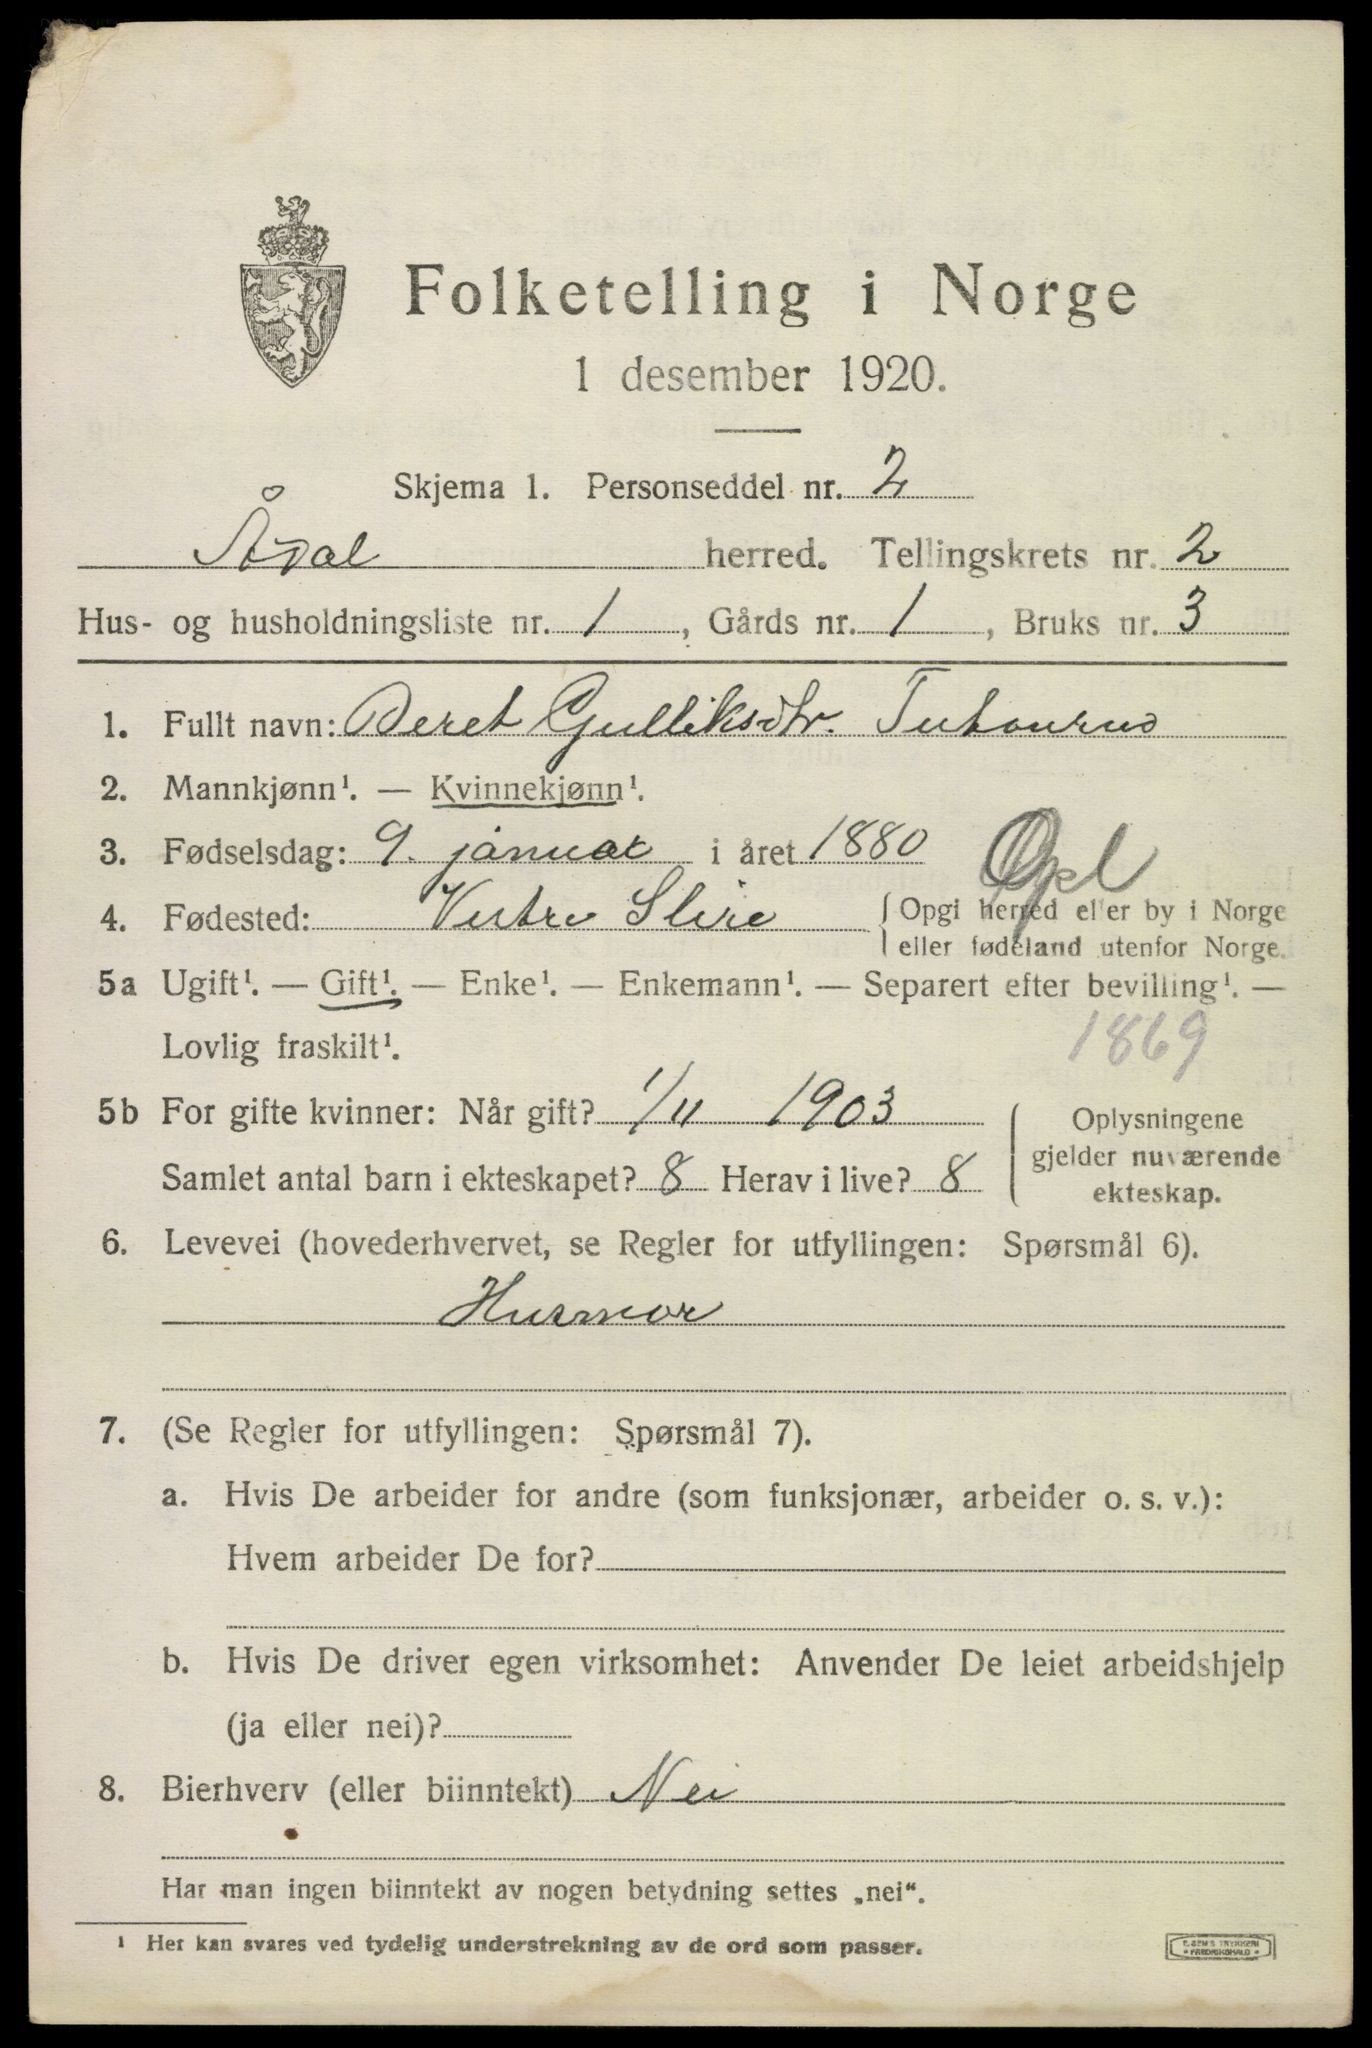 Folketelling i Norge
1 desember 1920.
Skjema 1. Personseddel nr. 2
Ådal herred. Tellingskrets nr. 2
Hus- og husholdningsliste nr. 1, Gårds nr. 1, Bruks nr. 3
1. Fullt navn: Beret Gulliksdtr.
2. Mannkjønn¹. — Kvinnekjønn¹.
3. Fødselsdag: 9. januar i året 1880
Opl
4. Fødested: Vestre Slire { Opgi herred eller by i Norge
eller fødeland utenfor Norge.
5a Ugift¹. — Gift¹. — Enke¹. — Enkemann¹. — Separert efter bevilling¹. —
Lovlig fraskilt¹.
1869
5b For gifte kvinner: Når gift? 1/11 1903
Samlet antal barn i ekteskapet? 8 Herav i live? 8
Oplysningene
gjelder nuværende
ekteskap.
6. Levevei (hovederhvervet, se Regler for utfyllingen: Spørsmål 6).
Husmor
7. (Se Regler for utfyllingen: Spørsmål 7).
a. Hvis De arbeider for andre (som funksjonær, arbeider o. s. v.):
Hvem arbeider De for?
b. Hvis De driver egen virksomhet: Anvender De leiet arbeidshjelp
(ja eller nei)?
8. Bierhverv (eller biinntekt) Nei
Har man ingen biinntekt av nogen betydning settes „nei“.
¹ Her kan svares ved tydelig understrekning av de ord som passer.
E. SEM'S TRYKKERI
FREDRIKSHALD